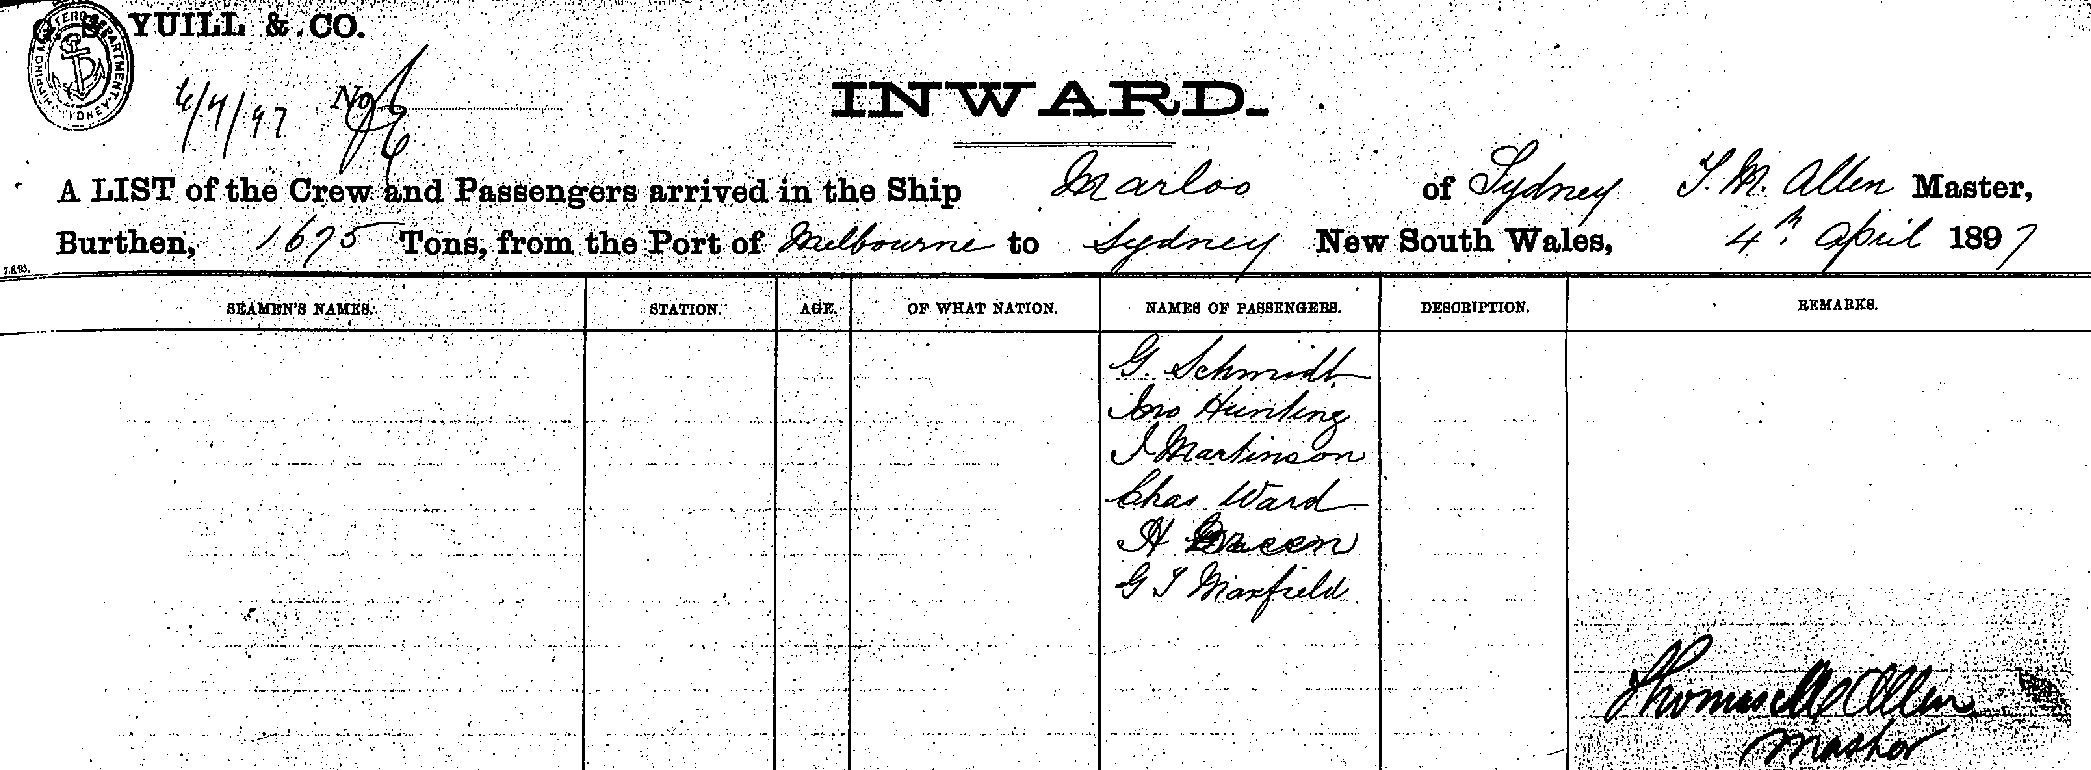 YUILL & CO.
6/4/97 No
INWARD.
A LIST of the Crew and Passengers arrived in the Ship Marloo of Sydney T. M. Allen Master,
Burthen, 1675 Tons, from the Port of Melbourne to Sydney New South Wales, 4th April 1897
SEAMEN'S NAMES. STATION. AGE. OF WHAT NATION. NAMES OF PASSENGERS. DESCRIPTION. REMARKS.
G. Schmidt
Jno Hunting
J Martinson
Chas Ward
H Green
G T Maxfield
Thomas M Allen
Master